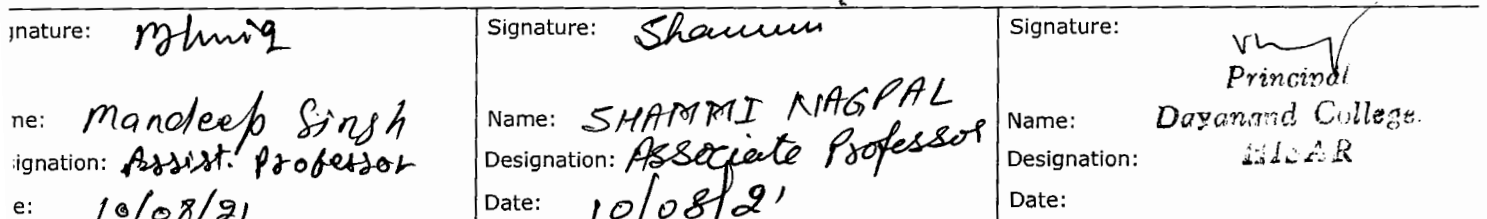 Signature: Signature: Shammi Signature:
Principal
Name: Mandeep Singh Name: SHAMMI NAGPAL Name: Dayanand College.
Designation: Assist. Professor Designation: Associate Professor Designation: HISAR
Date: 10/08/21 Date: 10/08/21 Date: